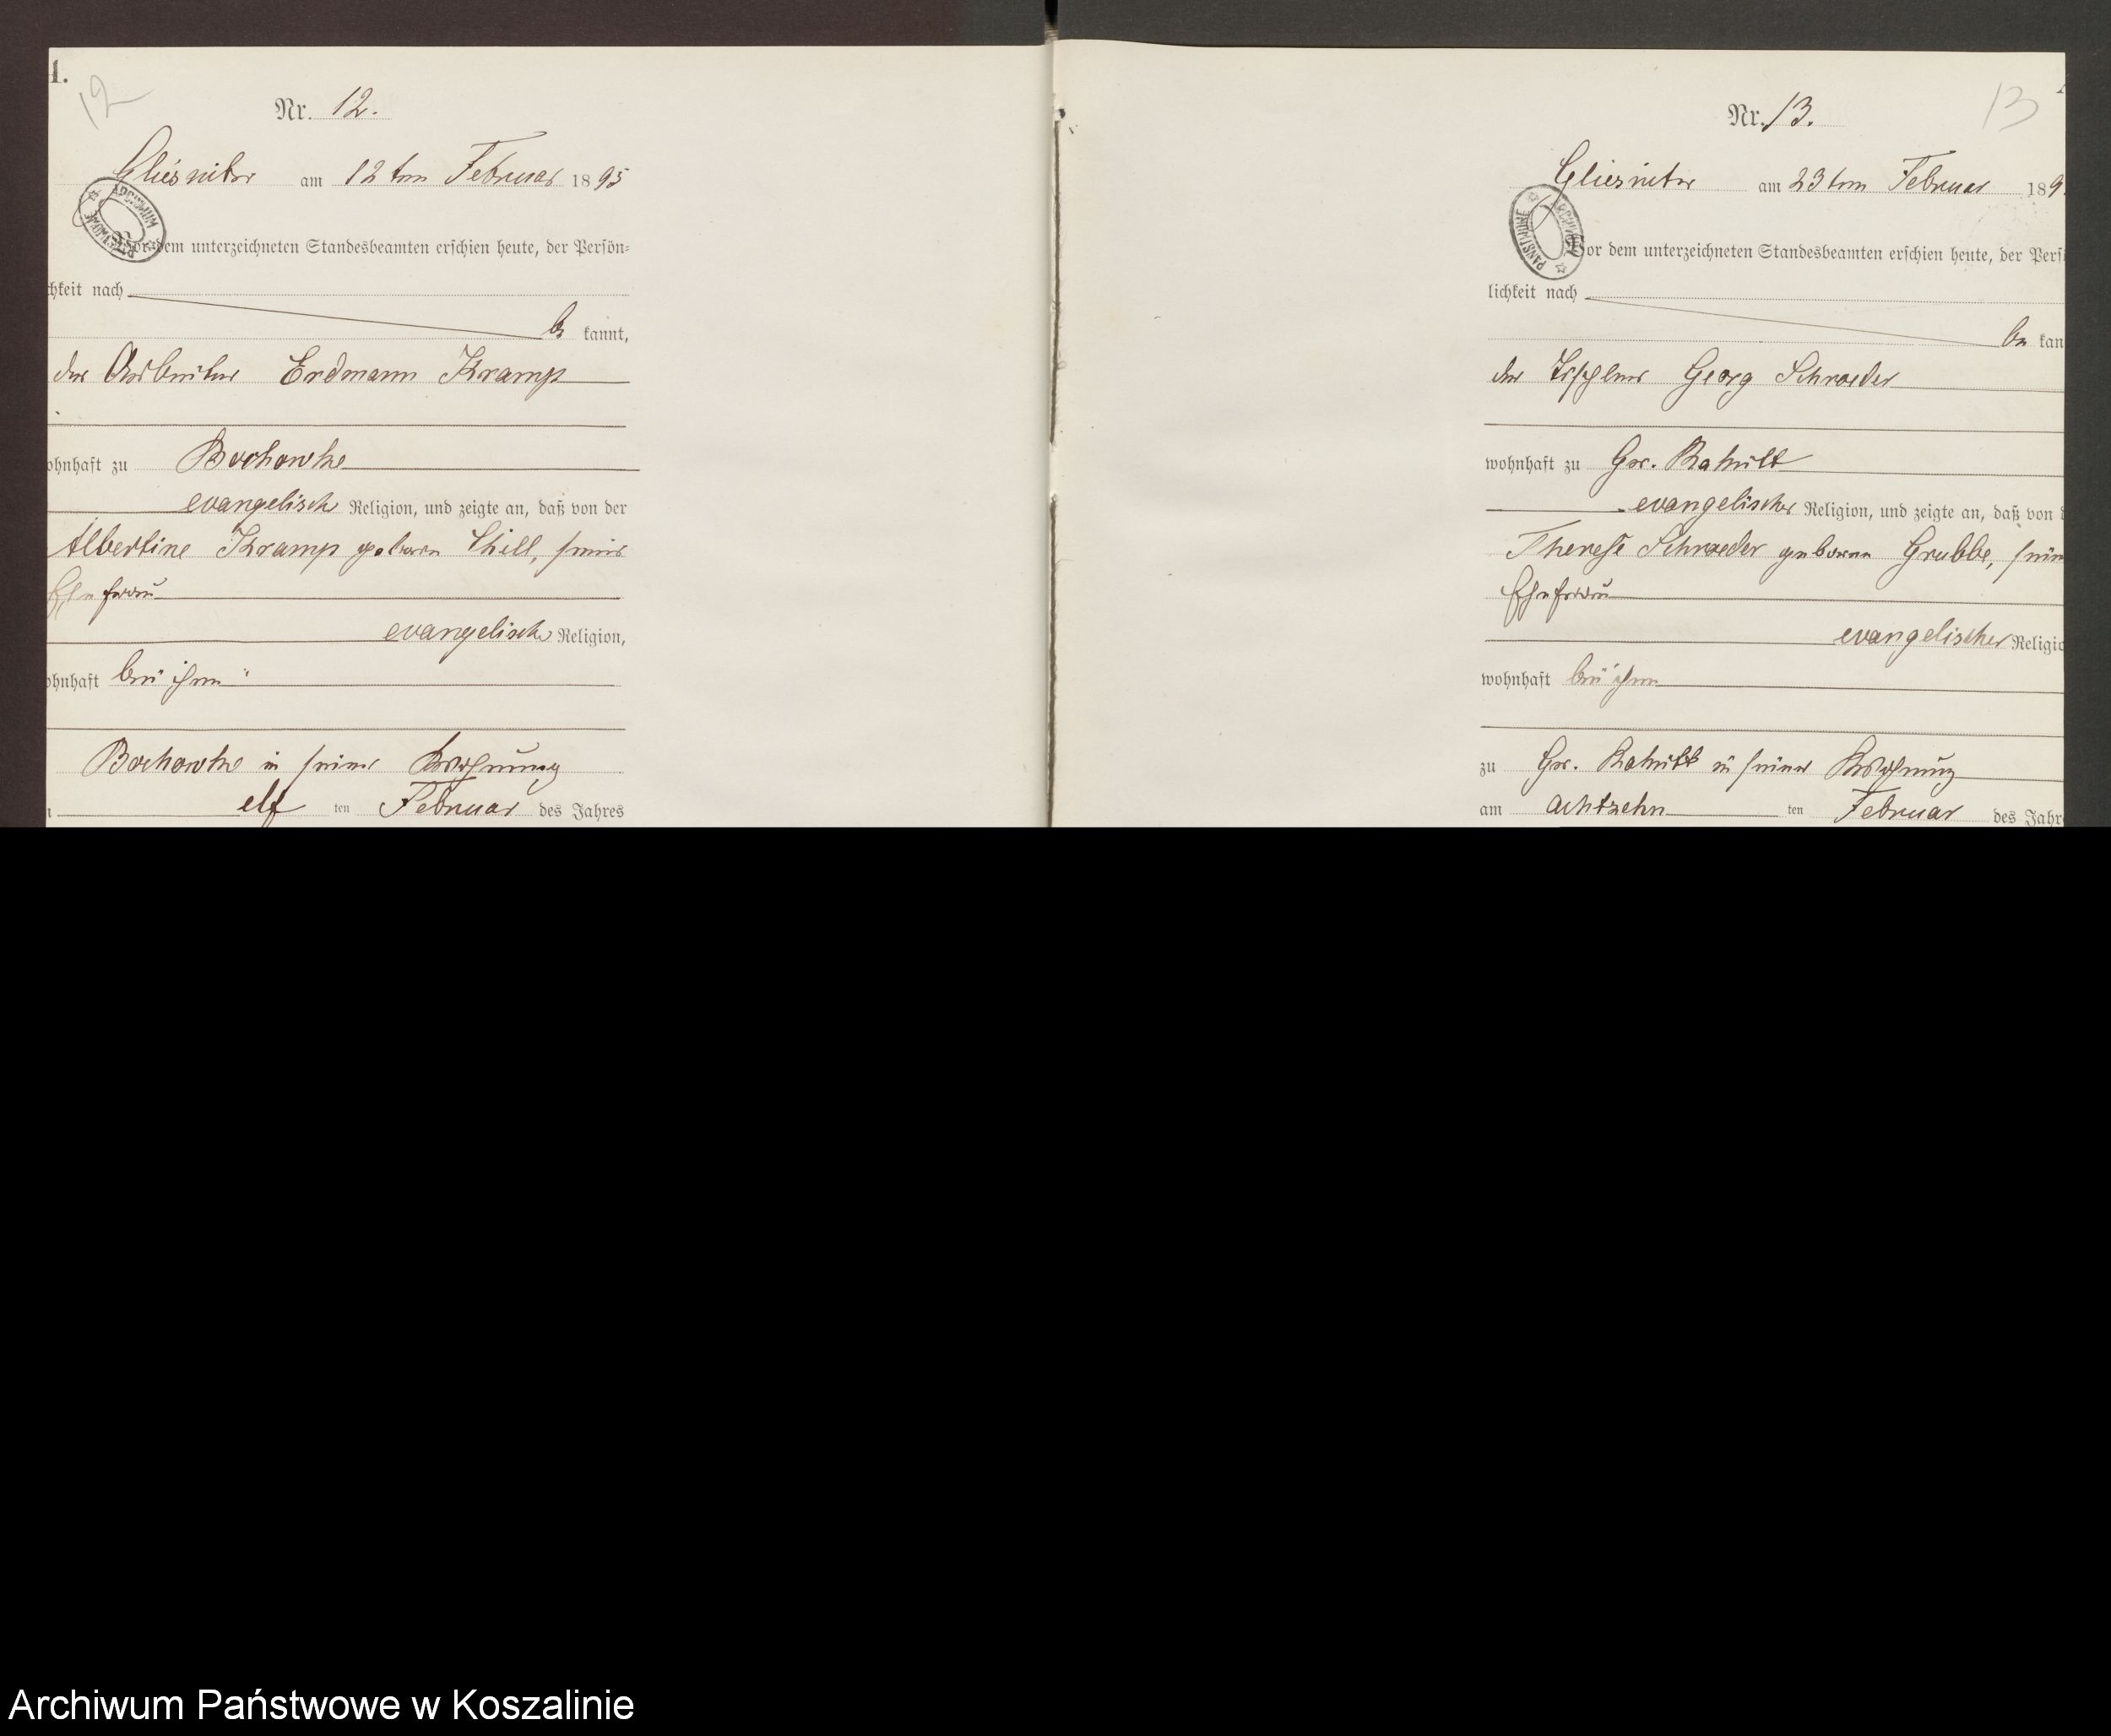 1.
12
Nr. 12.
Gliesnitz am 12ten Februar 1895
Vor dem unterzeichneten Standesbeamten erschien heute, der Persön-
chkeit nach
be kannt,
der Arbeiter Erdmann Kramp
ohnhaft zu Bochowke
evangelisch Religion, und zeigte an, daß von der
Albertine Kramp geboren Thill, seiner
Ehefrau
evangelisch Religion,
ohnhaft bei ihm
Bochowke in seiner Wohnung
elf ten Februar des Jahres
13
Nr. 13.
Gliesnitz am 23ten Februar 189
Vor dem unterzeichneten Standesbeamten erschien heute, der Pers
lichkeit nach
be kan
der Tischler Georg Schroeder
wohnhaft zu Gr. Rakitt
evangelischer Religion, und zeigte an, daß von d
Therese Schroeder geborene Grubbe, sein
Ehefrau
evangelischer Religio
wohnhaft bei ihm
zu Gr. Rakitt in seiner Wohnung
am achtzehn ten Februar des Jahr
ARCHIWUM PAŃSTWOWE
ARCHIWUM PAŃSTWOWE
Archiwum Państwowe w Koszalinie